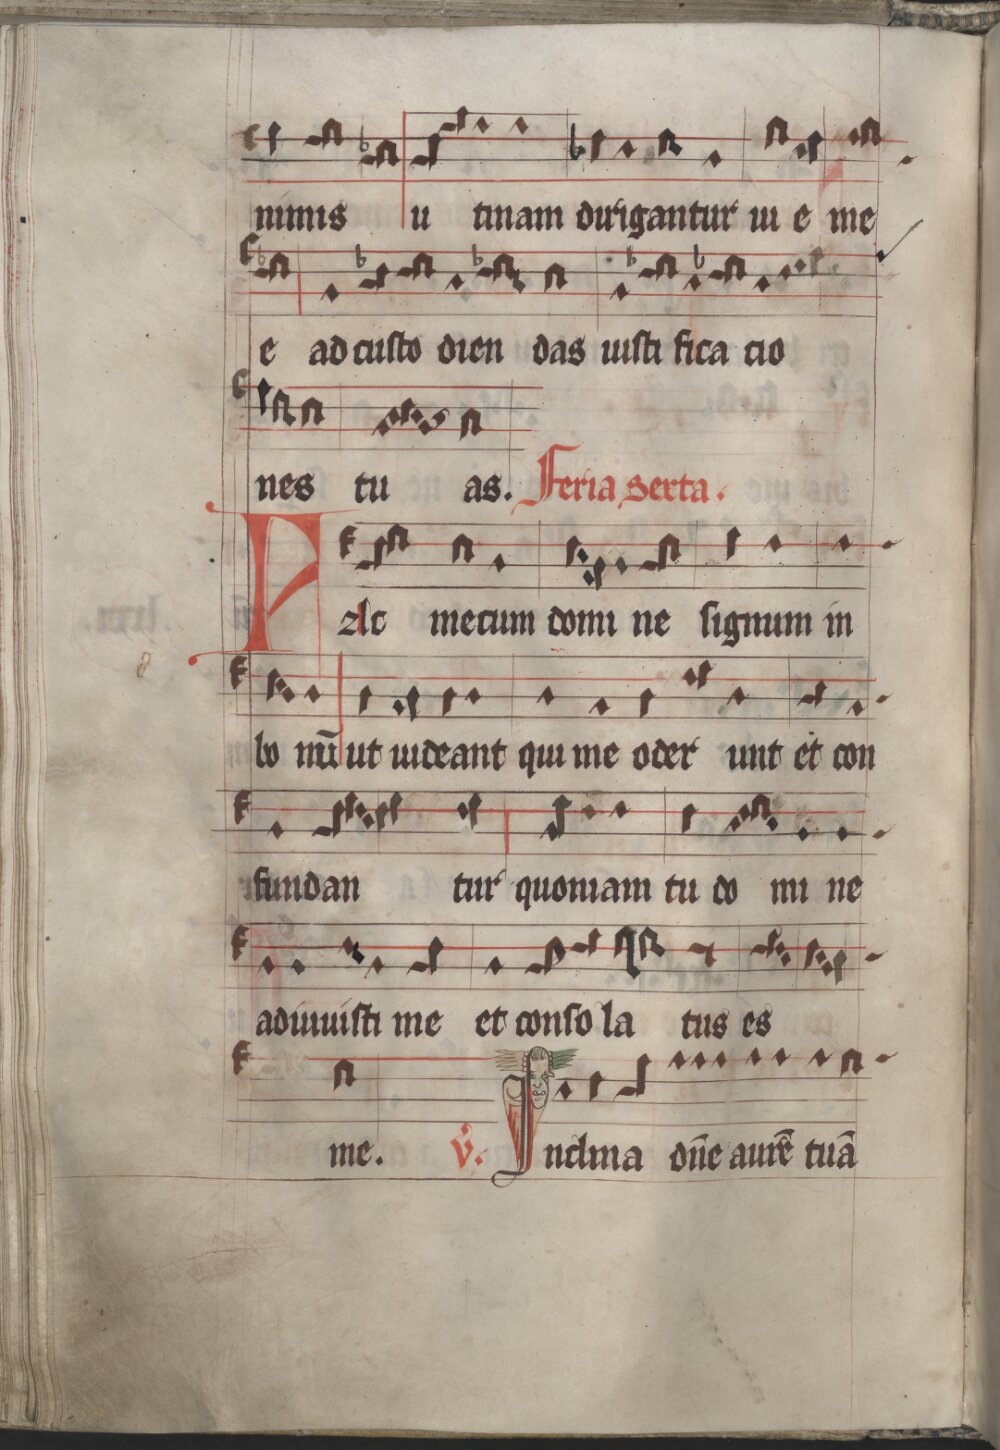 nimis u tinam dirigantur ui e me
e ad custo dien das iusti fica cio
nes tu as. Feria sexta.
Fac mecum domi ne signum in
bo nū ut uideant qui me oder unt et con
fundan tur quoniam tu do mi ne
adiuuisti me et conso la tus es
me. v̊. Inclina dn̄e aurē tuā